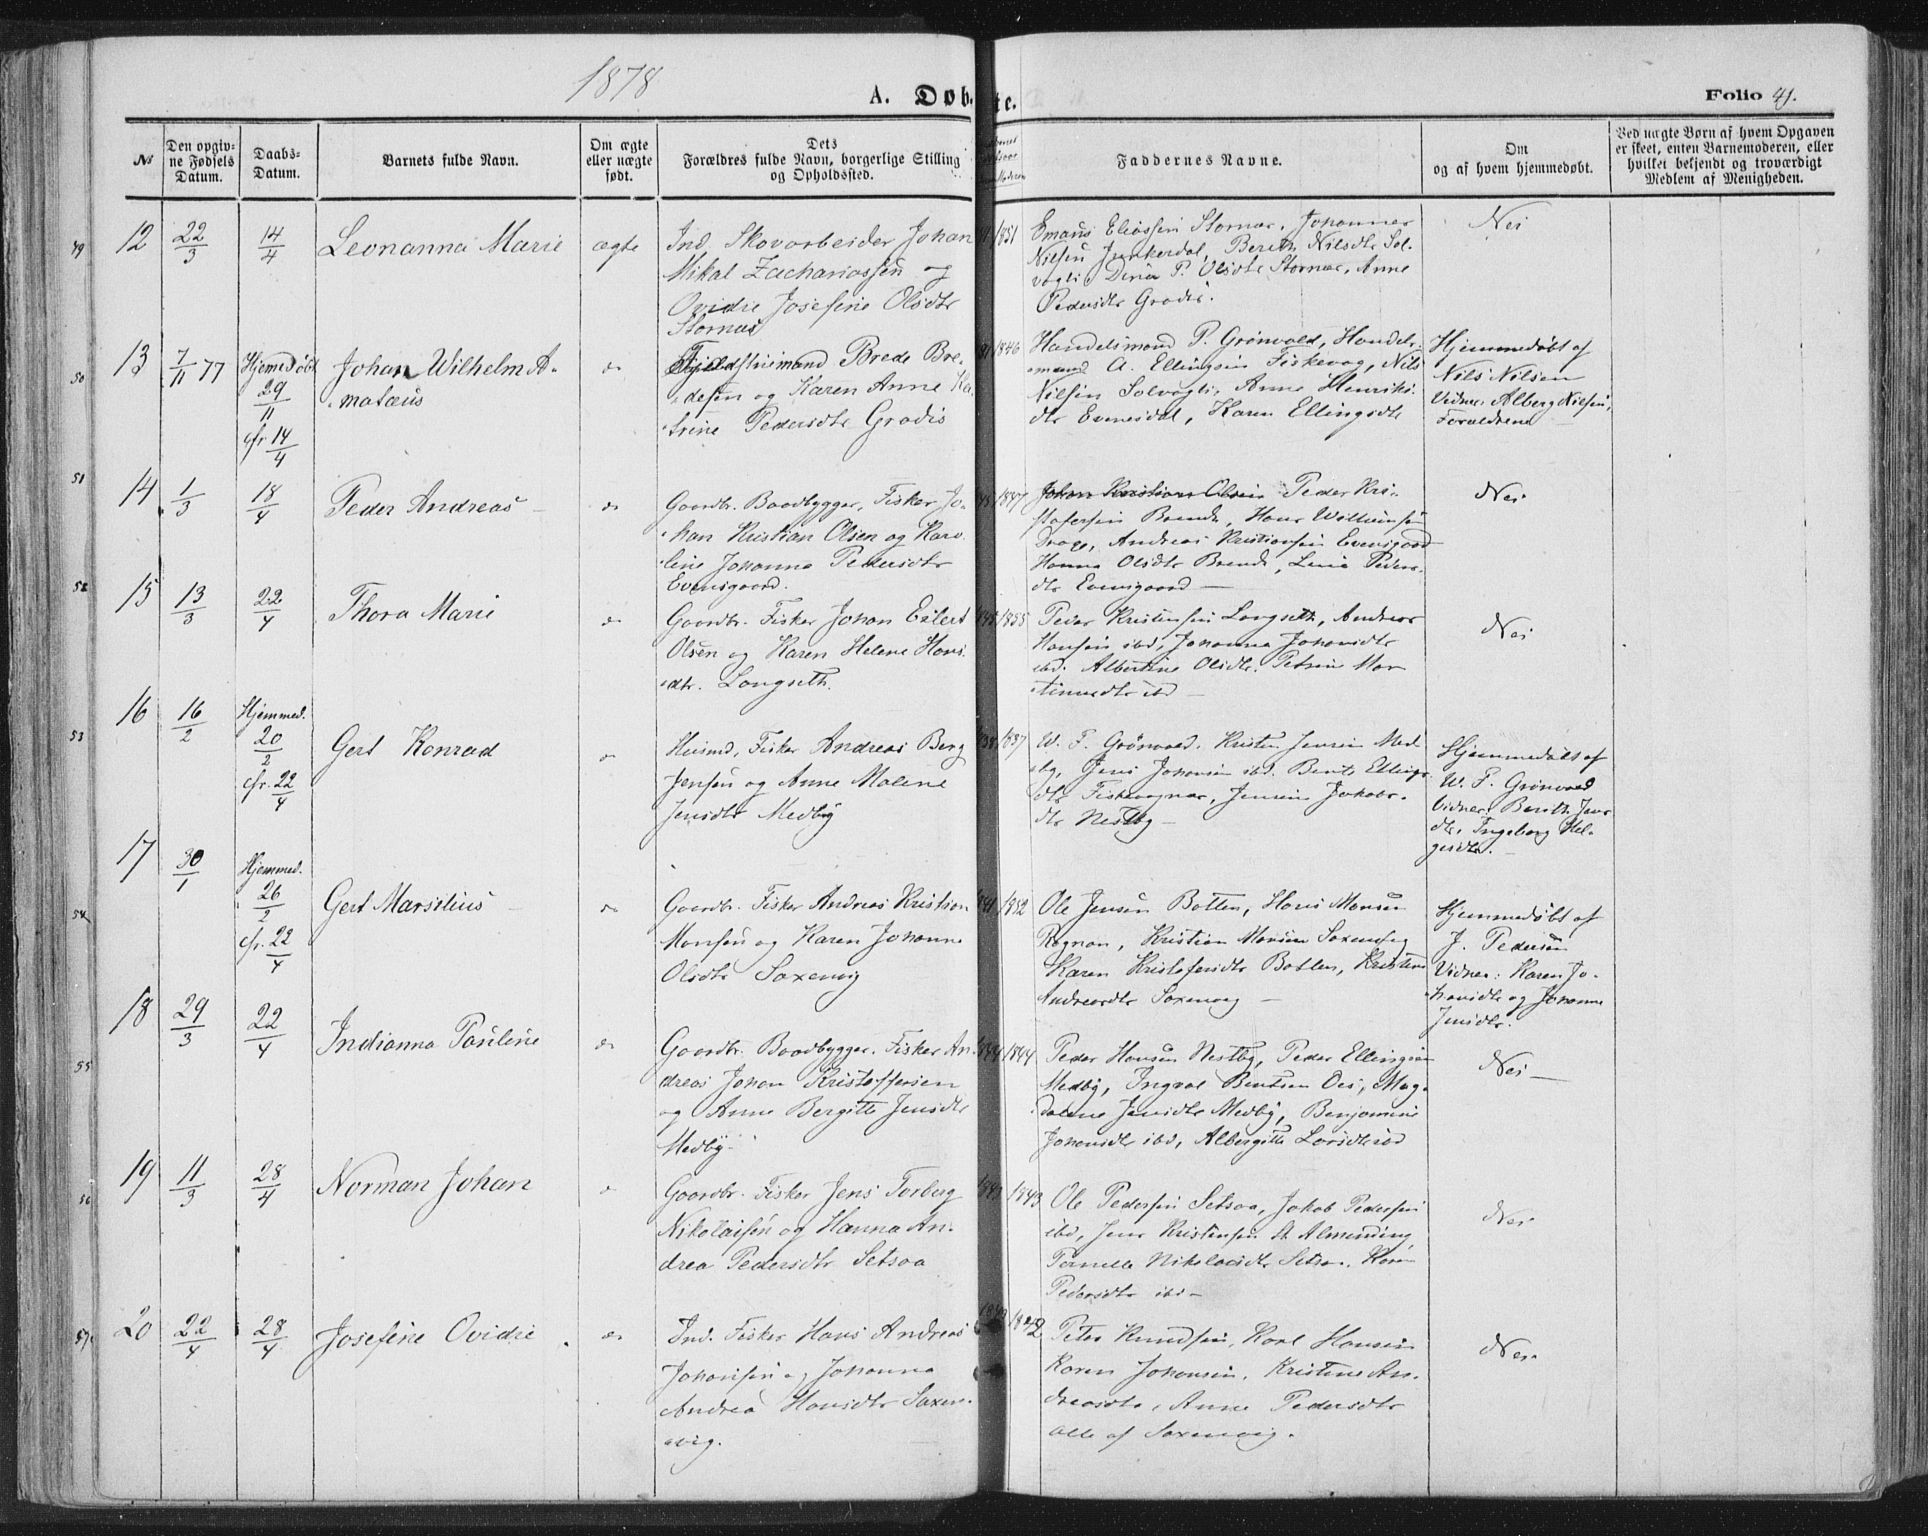 1878
A. Døb-
te.
Folio 41.
No
Den opgiv-
ne Fødsels
Datum.
Daabs-
Datum.
Barnets fulde Navn.
Om ægte
eller uægte
født.
Dets
Forældres fulde Navn, borgerlige Stilling
og Opholdssted.
Faddernes Navne.
Om
og af hvem hjemmedøbt.
Ved uægte Børn af hvem Opgaven
er skeet, enten Barnemoderen, eller
hvilket bekjendt og troværdigt
Medlem af Menigheden.
49
12
22/3
14/4
Leonanna Marie
ægte
Ind. Skovarbeider Johan
Mikal Zachariassen og
Ovidie Josefine Olsdtr
Stornæs
1851
Emaus Eliassen Stornæs, Johannes
Nilsen Junkerdal, Berith Nilsdtr Sol-
vogli, Dina P. Olsdtr Stornæs, Anne
Pedersdtr Gradis.
Nei
50
13
7/11 77
Hjemmedøbt
29/11
cfr. 14/4
Johan Wilhelm A-
matæus
do
Fjeldstuemand Brede Bre-
desen og Karen Anne Ka-
trine Pedersdtr Gradis
1846
Handelsmand P. Grønvold, Handels-
mand A. Ellingsen Fiskevog, Nils
Nilsen Solvogli, Anne Henriks-
dtr Evenesdal, Karen Ellingsdtr
Hjemmedøbt af
Nils Nilsen
Vidner: Alberg Nilsen,
Forældrene
51
14
1/3
18/4
Peder Andreas
do
Gaardbr. Baadbygger, Fisker Jo-
han Kristian Olsen og Karo-
line Johanna Pedersdtr
Evensgaard.
1847
Johan Kristian Olsen Peder Kri-
stofersen Brende, Hans Willumsen
Drage, Andreas Kristiansen Evensgaard
Hanna Olsdtr Brende, Lina Peders-
dtr Evensgaard
Nei
52
15
13/3
22/4
Thora Marie
do
Gaardbr. Fisker Johan Eilert
Olsen og Karen Helene Hans-
dtr. Longseth.
1855
Peder Kristensen Longseth, Andreas
Hansen ibd, Johanna Johansdtr
ibd. Albertine Olsdtr. Petrin Mar-
tinusdtr ibd
Nei
53
16
16/2
Hjemmed.
20/2
cfr. 22/4
Gert Konrad
do
Husmd, Fisker Andreas Berg
Jensen og Anne Malene
Jensdtr Medby
1838
1837
W. F. Grønvold. Kristen Jensen Med-
by, Jens Johansen ibd. Berit Ellings-
dtr Fiskevognæs, Jensine Jakobs-
dtr Nestby
Hjemmedøbt af
W. F. Grønvold
Vidner: Berith Jens-
dtr, Ingeborg Hel-
gesdtr.
54
17
30/1
Hjemmed.
26/2
cfr. 22/4
Gert Marsilius
do
Gaardbr. Fisker Andreas Kristian
Monsen og Karen Johanne
Olsdtr Saxenvig
1841
1852
Ole Jensen Botten, Hans Monsen
Rognan, Kristian Monsen Saxenvig
Karen Kristofersdtr Botten, Kristine
Andreasdtr Saxenvig
Hjemmedøbt af
J. Pedersen
Vidner: Karen Jo-
hansdtr og Johanne
Jensdtr.
55
18
29/3
22/4
Indianna Pauline
do
Gaardbr. Baadbygger. Fisker An-
dreas Johan Kristoffersen
og Anne Bergitte Jensdtr
Medby.
1844
1844
Peder Hansen Nestby, Peder Ellingsen
Medby, Ingval Bentsen Oei, Mag-
dalene Jensdtr Medby, Benjamine
Johansdtr ibd, Albergitte Larsdtr ibd
Nei
56
19
11/3
28/4
Norman Johan
do
Gaardbr. Fisker Jens Torberg
Nikolaisen og Hanna An-
drea Pedersdtr Setsaa
1843
1843
Ole Pedersen Setsaa, Jakob Pedersen
ibd, Jens Kristensen St. Almenning
Pernelle Nikolaisdtr Setsaa. Karen
Pedersdtr ibd
Nei
57
20
22/4
28/4
Josefine Ovidie
do
Ind. Fisker Hans Andreas
Johansen og Johanna
Andrea Hansdtr Saxen-
vig.
1842
Peter Knudsen, Karl Hansen
Karen Johansen, Kristine An-
dreasdtr, Anne Pedersdtr
alle af Saxenvig.
Nei